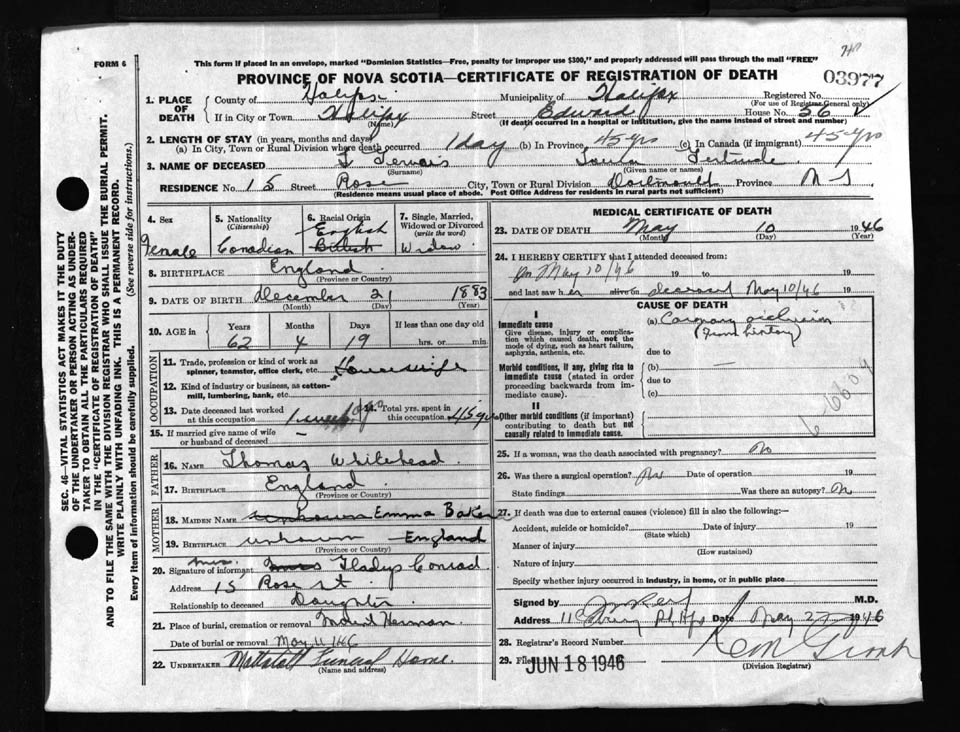 FORM 6
This form if placed in an envelope, marked "Dominion Statistics—Free, penalty for improper use $300," and properly addressed will pass through the mail "FREE"
PROVINCE OF NOVA SCOTIA—CERTIFICATE OF REGISTRATION OF DEATH
03977
1. PLACE OF DEATH
County of Halifax Municipality of Halifax Registered No.
(For use of Registrar General only)
If in City or Town Halifax Street Edward House No. 56
(Name) (If death occurred in a hospital or institution, give the name instead of street and number)
2. LENGTH OF STAY (in years, months and days)
(a) In City, Town or Rural Division where death occurred 1 day (b) In Province 45 yrs (c) In Canada (if immigrant) 45 yrs
3. NAME OF DECEASED Gertrude
(Surname) (Given name or names)
RESIDENCE No. 15 Street Rose City, Town or Rural Division Dartmouth Province N S
(Residence means usual place of abode. Post Office Address for residents in rural parts not sufficient)
SEC. 46—VITAL STATISTICS ACT MAKES IT THE DUTY
OF THE UNDERTAKER OR PERSON ACTING AS UNDER-
TAKER TO OBTAIN ALL THE PARTICULARS REQUIRED
IN THE "CERTIFICATE OF REGISTRATION OF DEATH"
AND TO FILE THE SAME WITH THE DIVISION REGISTRAR WHO SHALL ISSUE THE BURIAL PERMIT.
WRITE PLAINLY WITH UNFADING INK. THIS IS A PERMANENT RECORD.
Every item of information should be carefully supplied. (See reverse side for instructions.)
4. Sex Female
5. Nationality (Citizenship) Canadian
6. Racial Origin English British
7. Single, Married, Widowed or Divorced (write the word) Widow
8. BIRTHPLACE England
(Province or Country)
9. DATE OF BIRTH December 21 1883
(Month) (Day) (Year)
10. AGE in Years Months Days If less than one day old
62 4 19 hrs. or min.
OCCUPATION
11. Trade, profession or kind of work as spinner, teamster, office clerk, etc. Housewife
12. Kind of industry or business, as cotton-mill, lumbering, bank, etc.
13. Date deceased last worked at this occupation 14. Total yrs. spent in this occupation 45 yrs
15. If married give name of wife or husband of deceased —
FATHER
16. NAME Thomas Whitehead
17. BIRTHPLACE England
(Province or Country)
MOTHER
18. MAIDEN NAME unknown Emma Baker
19. BIRTHPLACE unknown England
(Province or Country)
20. Signature of informant Mrs. Gladys Conrad
Address 15 Rose St.
Relationship to deceased Daughter
21. Place of burial, cremation or removal Mount Herman
Date of burial or removal May 11/46
22. UNDERTAKER Mattatall Funeral Home.
(Name and address)
MEDICAL CERTIFICATE OF DEATH
23. DATE OF DEATH May 10 1946
(Month) (Day) (Year)
24. I HEREBY CERTIFY that I attended deceased from:
On May 10/46 19 to 19
and last saw her alive on deceased May 10/46 19
CAUSE OF DEATH
I
Immediate cause
Give disease, injury or complication which caused death, not the mode of dying, such as heart failure, asphyxia, asthenia, etc.
(a) Coronary
(from history)
due to
Morbid conditions, if any, giving rise to immediate cause (stated in order proceeding backwards from immediate cause).
(b) —
due to
(c)
II
Other morbid conditions (if important) contributing to death but not causally related to immediate cause.
25. If a woman, was the death associated with pregnancy? No
26. Was there a surgical operation? Date of operation 19
State findings Was there an autopsy? No
27. If death was due to external causes (violence) fill in also the following:—
Accident, suicide or homicide? Date of injury 19
(State which)
Manner of injury
(How sustained)
Nature of injury
Specify whether injury occurred in industry, in home, or in public place
Signed by M.D.
Address Date May 1946
28. Registrar's Record Number
29. Filed JUN 18 1946
(Division Registrar)